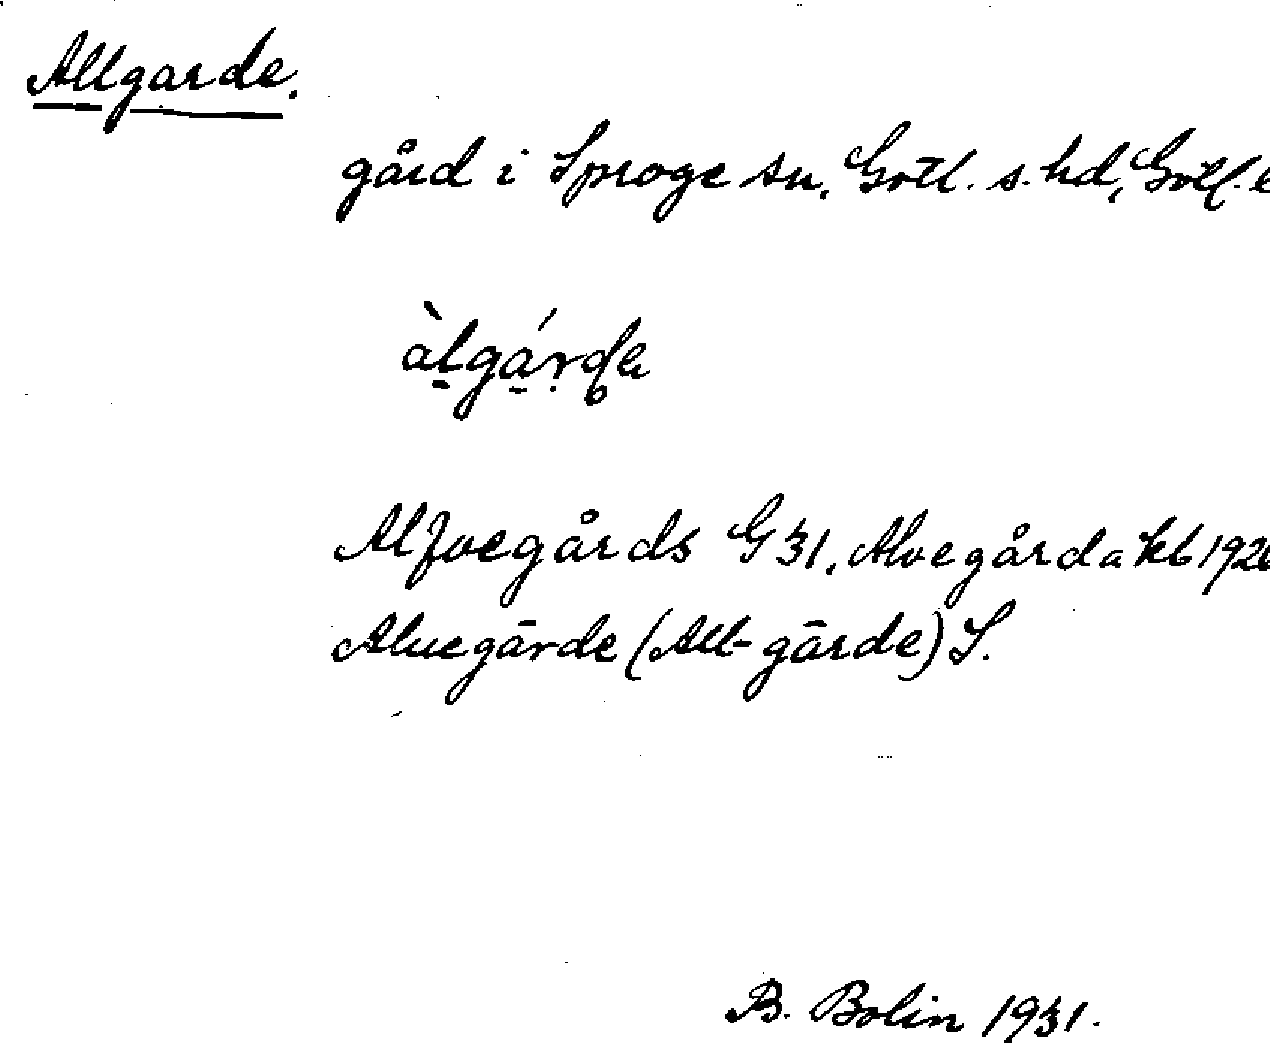 Allgarde.
gård i Sproge sn, Gotl. s. hd, Gotl.
àlgárde
Alfvegårds G 31, Alvegårda kb 192
Alvegārde (All-gārde) S.
B. Bolin 1931.